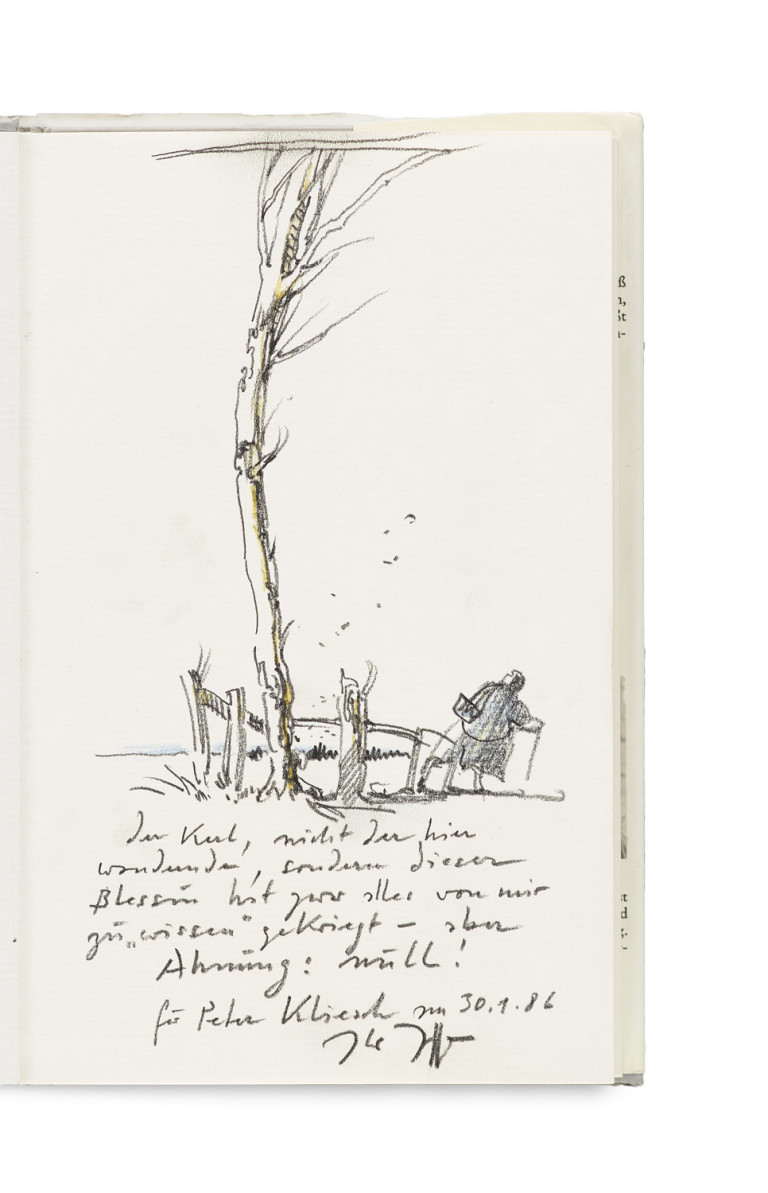 ß
n,
ßt
n-
der Kerl, nicht der hier
wandernde, sondern dieser
Blessin hat zwar alles von mir
zu „wissen“ gekriegt – aber
Ahnung: null!
für Peter Kliesch am 30.1.86
st
d